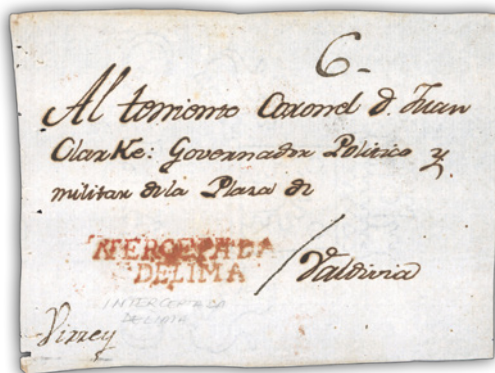 6-
Al teniente Coronel d. Juan
Clarke: Governador Politico y
militar de la Plaza de
NTERCEPTADA
DE LIMA
/ Valdivia
INTERCEPTADA
DE LIMA
Virrey